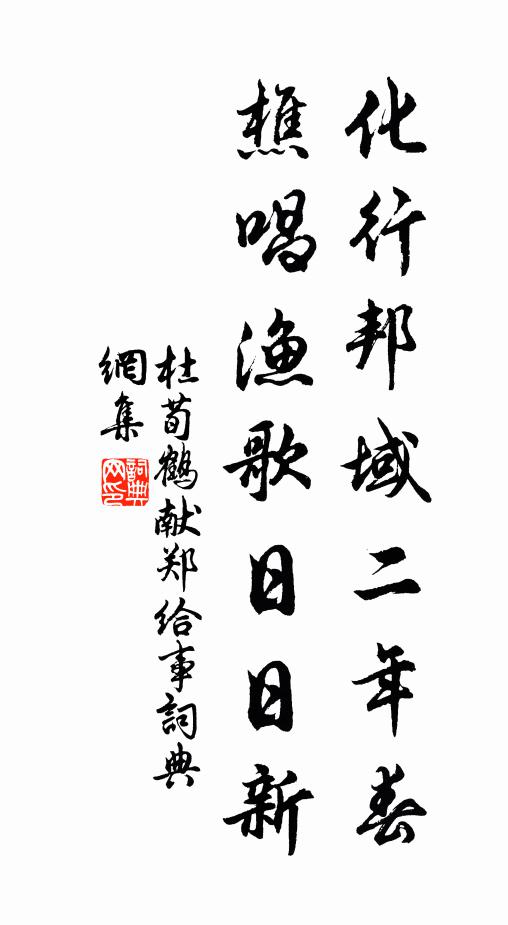 化行邦域二年春
樵唱渔歌日日新
杜荀鶴献郑给事詞典
網集
詞典
网印